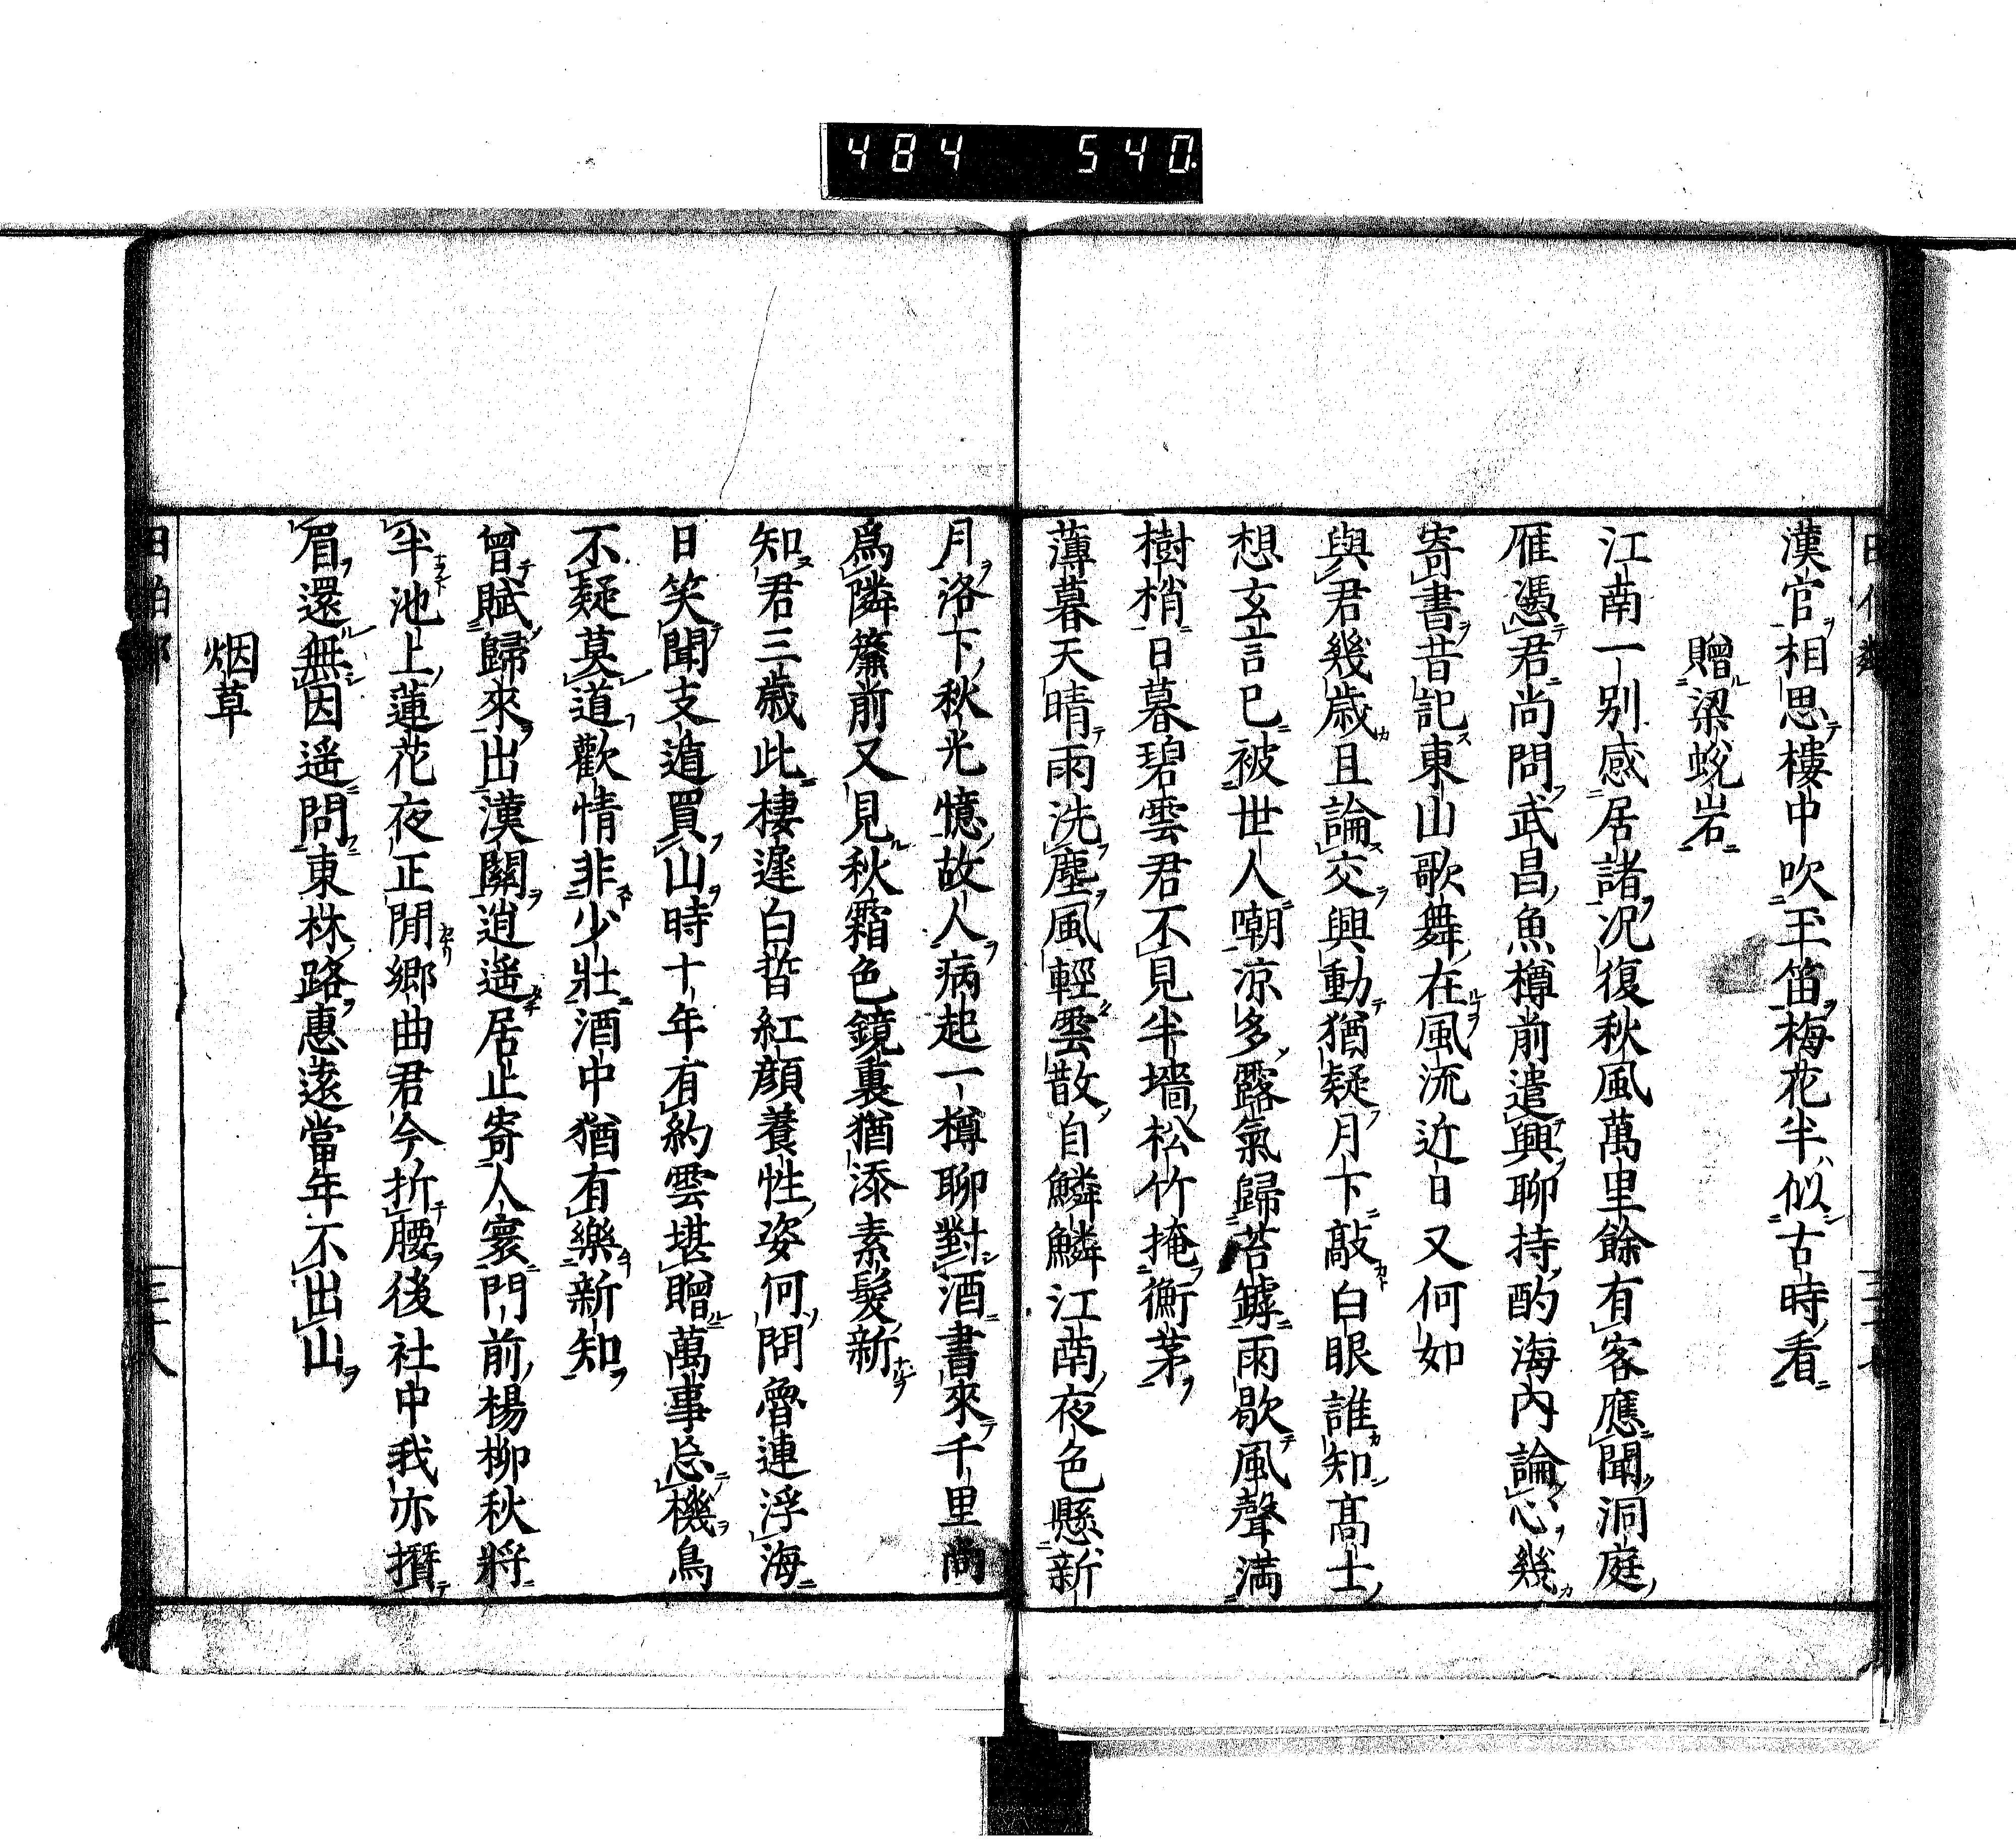 484 540
漢官相思樓中吹玉笛梅花半似古時看
贈梁蛻岩
江南一別感居諸況復秋風萬里餘有客應聞洞庭
雁憑君尚問武昌魚樽前遣興聊持酌海內論心幾
寄書昔記東山歌舞在風流近日又何如
與君幾歲且論交興動猶疑月下敲白眼誰知高士
想玄言已被世人嘲涼多露氣歸苔罅雨歇風聲滿
樹梢日暮碧雲君不見半墻松竹掩衡茅
薄暮天晴雨洗塵風輕雲散自鱗鱗江南夜色懸新
月洛下秋光憶故人病起一樽聊對酒書來千里尚
為隣簾前又見秋霜色鏡裏猶添素髮新
知君三歲此棲遲白晢紅顏養性姿何問魯連浮海
日笑聞支遁買山時十年有約雲堪贈萬事忘機鳥
不疑莫道歡情非少壯酒中猶有樂新知
曾賦歸來出漢關逍遙居止寄人寰門前楊柳秋將
半池上蓮花夜正閒鄉曲君今折腰後社中我亦攢
眉還無因遙問東林路惠遠當年不出山
烟草